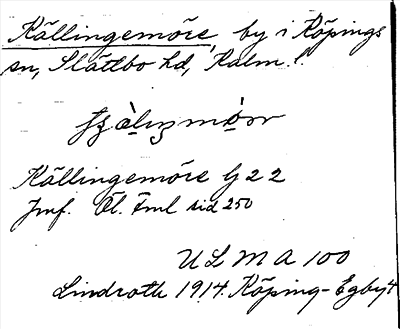 Källingemöre, by i Köpings
sn, Slättbo hd, Kalm. l.
Källingemöre G 2 2
Jmf. Öl. Fml sid 250
U L M A 100
Lindroth 1914. Köping-Egby 4